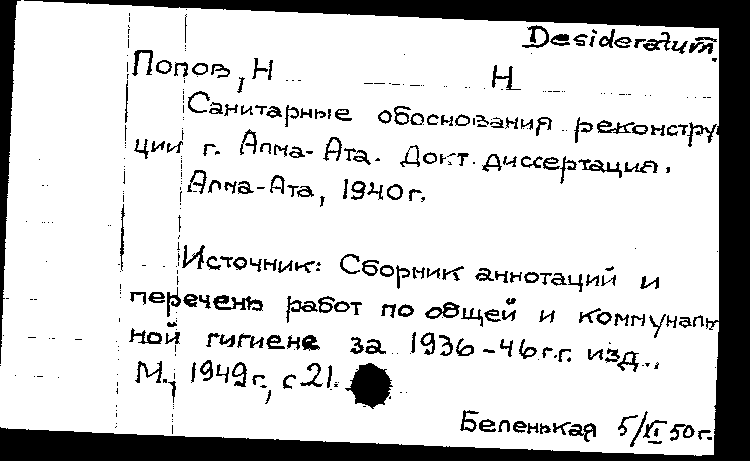 Desideratum.
Попов, Н Н
Санитарные обоснования реконстру
ции г. Алма-Ата. Докт. диссертация.
Алма-Ата, 1940г.
Источник: Сборник аннотаций и
перечень работ по общей и коммуналь
ной гигиене за 1936-46г.г. изд..
М., 1949г., с 21.
Беленькая 5/XI 50г.